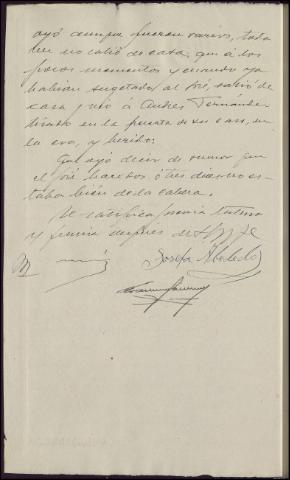 oyó aunque fueron varios, toda
vez no salió de casa, que á los
pocos momentos y cuando ya
habian sugetado al José, salió de
casa y vió á Andres Fernandez
tirado en la puerta de su casa, en
la era, y herido.
Que oyó decir de rumor que
el José hace dos ó tres dias no es-
taba bien de la cabeza.
Se ratifica previa lectura
y firma despues de S.S. doy fe
Josefa